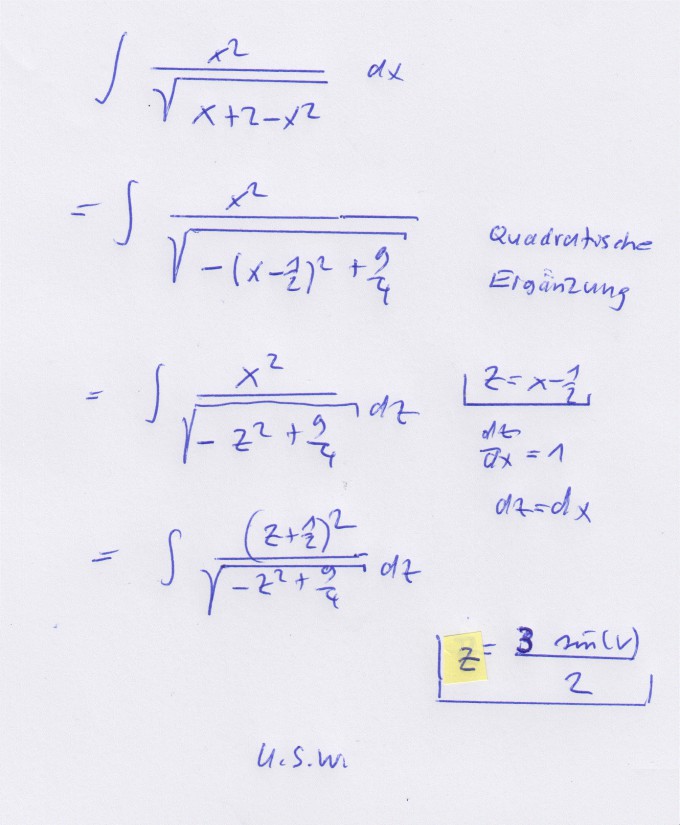 ∫ x² / √(x+2-x²) dx
= ∫ x² / √(-(x-1/2)² + 9/4)
Quadratische
Ergänzung
= ∫ x² / √(-z² + 9/4) dz
z = x-1/2
dz/dx = 1
dz = dx
= ∫ (z+1/2)² / √(-z² + 9/4) dz
z = 3 sin(v) / 2
u.s.w.